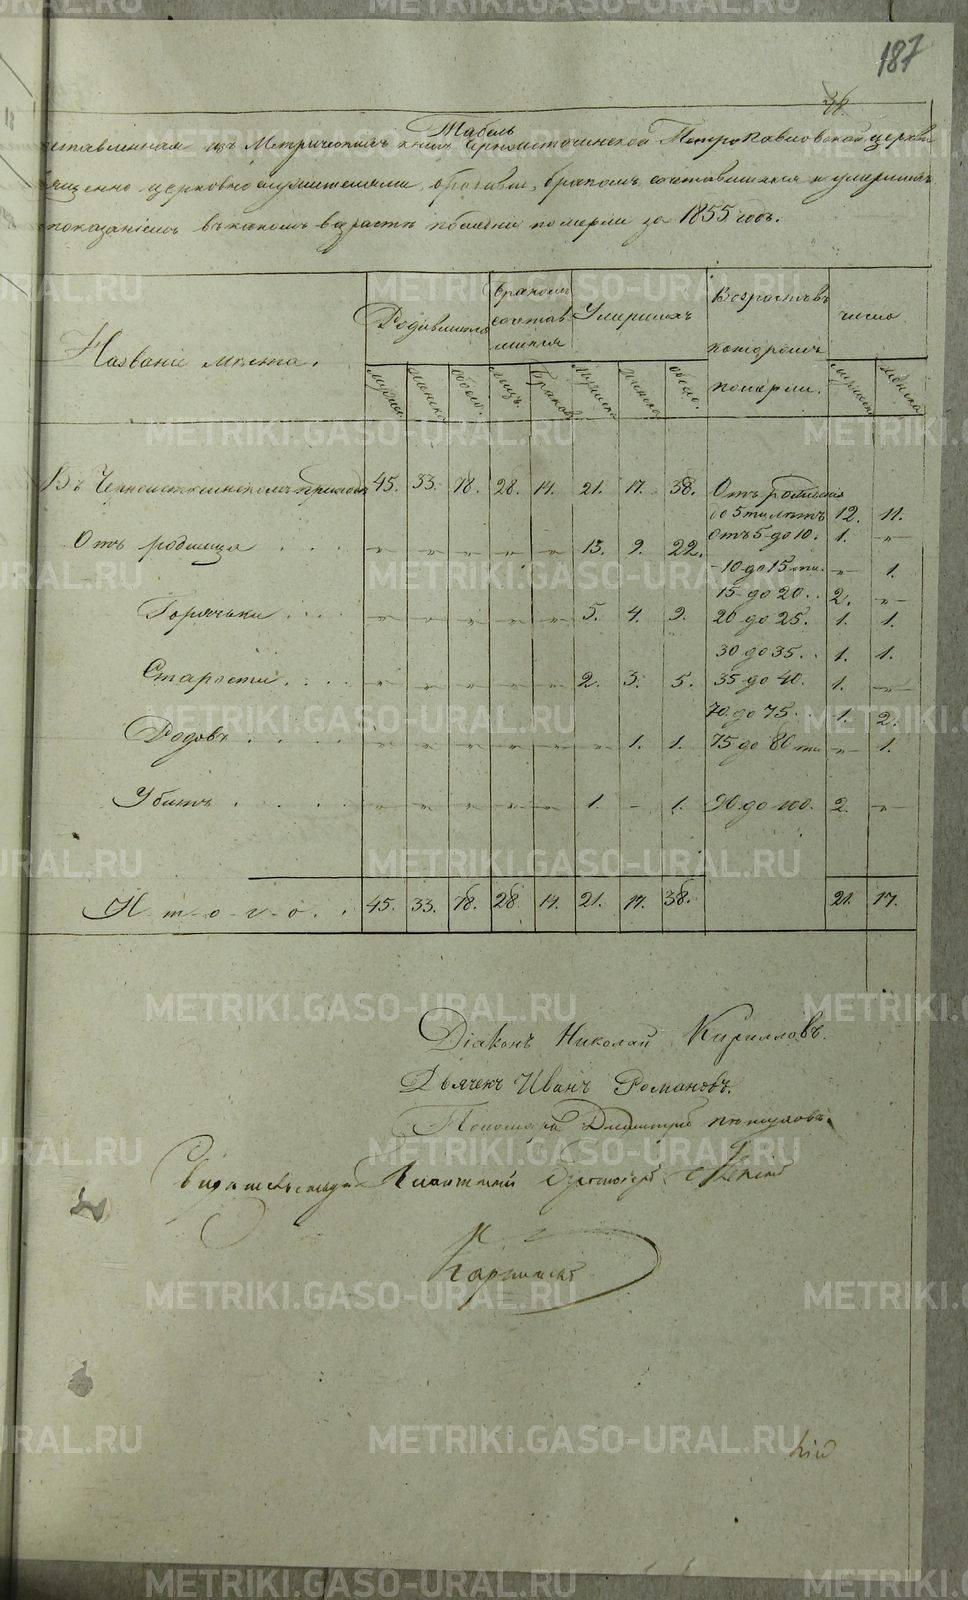 187
36.
Табель
ставленная изъ Метрическихъ книгъ Черноисточинской Петропавловской церкви
священно церковнослужителями, о бракомъ сочетавшихся и умершихъ
показаніемъ въ какомъ возрастѣ померли за 1855 годъ.
Названіе мѣста. Родившихся бракомъ сочетавшихся Умершихъ Возрастъ въ которомъ померли. число
мужска женска обоего. лицъ. браковъ мужска женска обоего. мужска женска
Въ Черноисточинскомъ приходѣ 45. 33. 78. 28. 14. 21. 17. 38. Отъ рожденія
до 5ти лѣтъ 12. 11.
Отъ родимца . . . . „ „ „ „ „ 13. 9. 22. Отъ 5 до 10. 1. „
- 10 до 15ти. „ 1.
15 до 20. . 2. „
Горячьки . . . „ „ „ „ „ 5. 4. 9. 20 до 25. 1. 1.
30 до 35. . 1. 1.
Старости . . . . „ „ „ „ „ 2. 3. 5. 35 до 40. 1. „
70. до 75. 1. 2.
Родовъ . . . . „ „ „ „ „ „ 1. 1. 75 до 80ти „ 1.
Убитъ . . . . „ „ „ „ „ 1. - 1. 90. до 100. 2. „
И-т-о-г-о. . . 45. 33. 78. 28. 14. 21. 17. 38. 21. 17.
Діаконъ Николай Кирилловъ.
Дьячекъ Иванъ Романовъ.
Пономарь Димитрій
METRIKI.GASO-URAL.RU